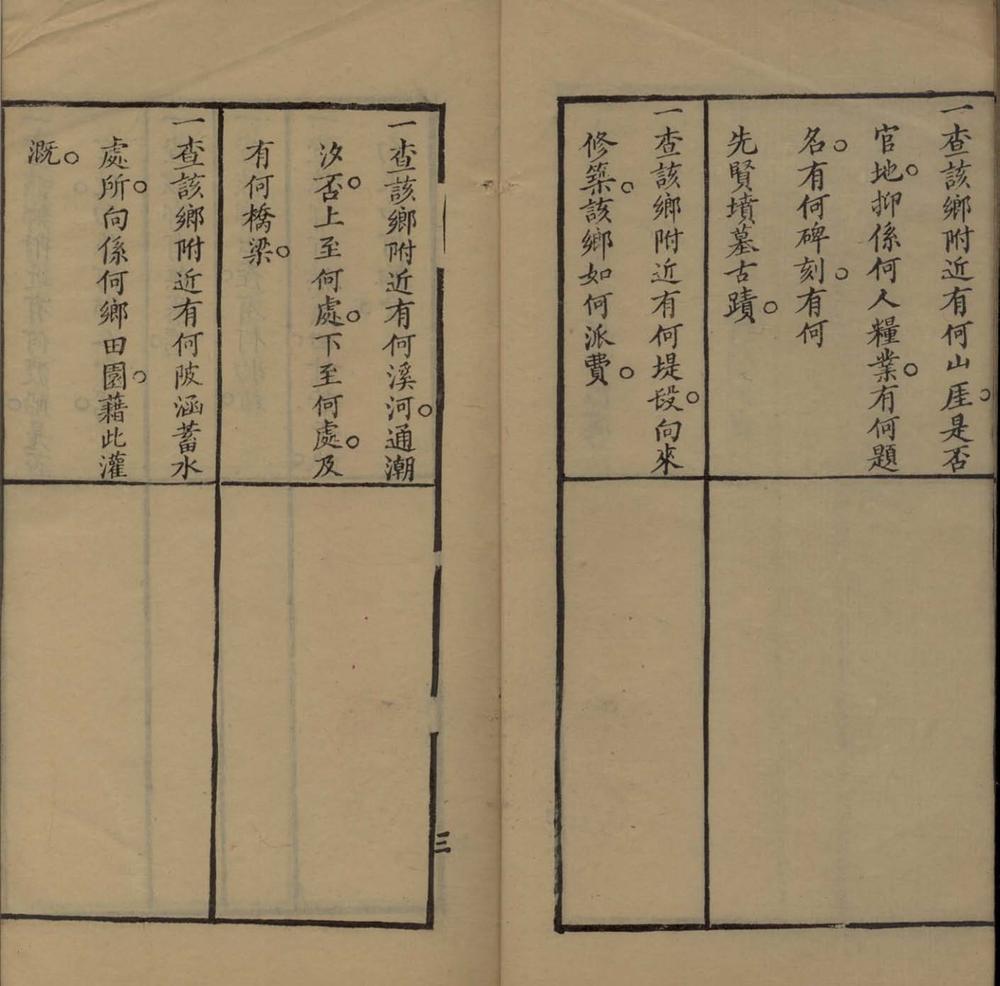 一查該鄉附近有何山厓。是否
官地。抑係何人糧業。有何題
名。有何碑刻。有何
先賢墳墓古蹟。
一查該鄉附近有何堤圾。向來
修築。該鄉如何派費。
一查該鄉附近有何溪河。通潮
汐否。上至何處。下至何處。及
有何橋梁。
一查該鄉附近有何陂涵蓄水
處所。向係何鄉田園。藉此灌
溉。
三